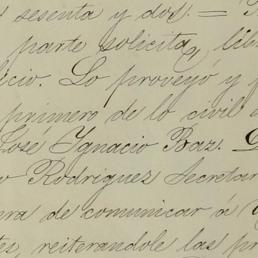 sesenta y dos. =
parte solicita, lib
icio. Lo proveyó y
primero de lo civil
José Ygnacio Baz.
o Rodriguez Secretar
era de comunicar á
tes, reiterandole las pr